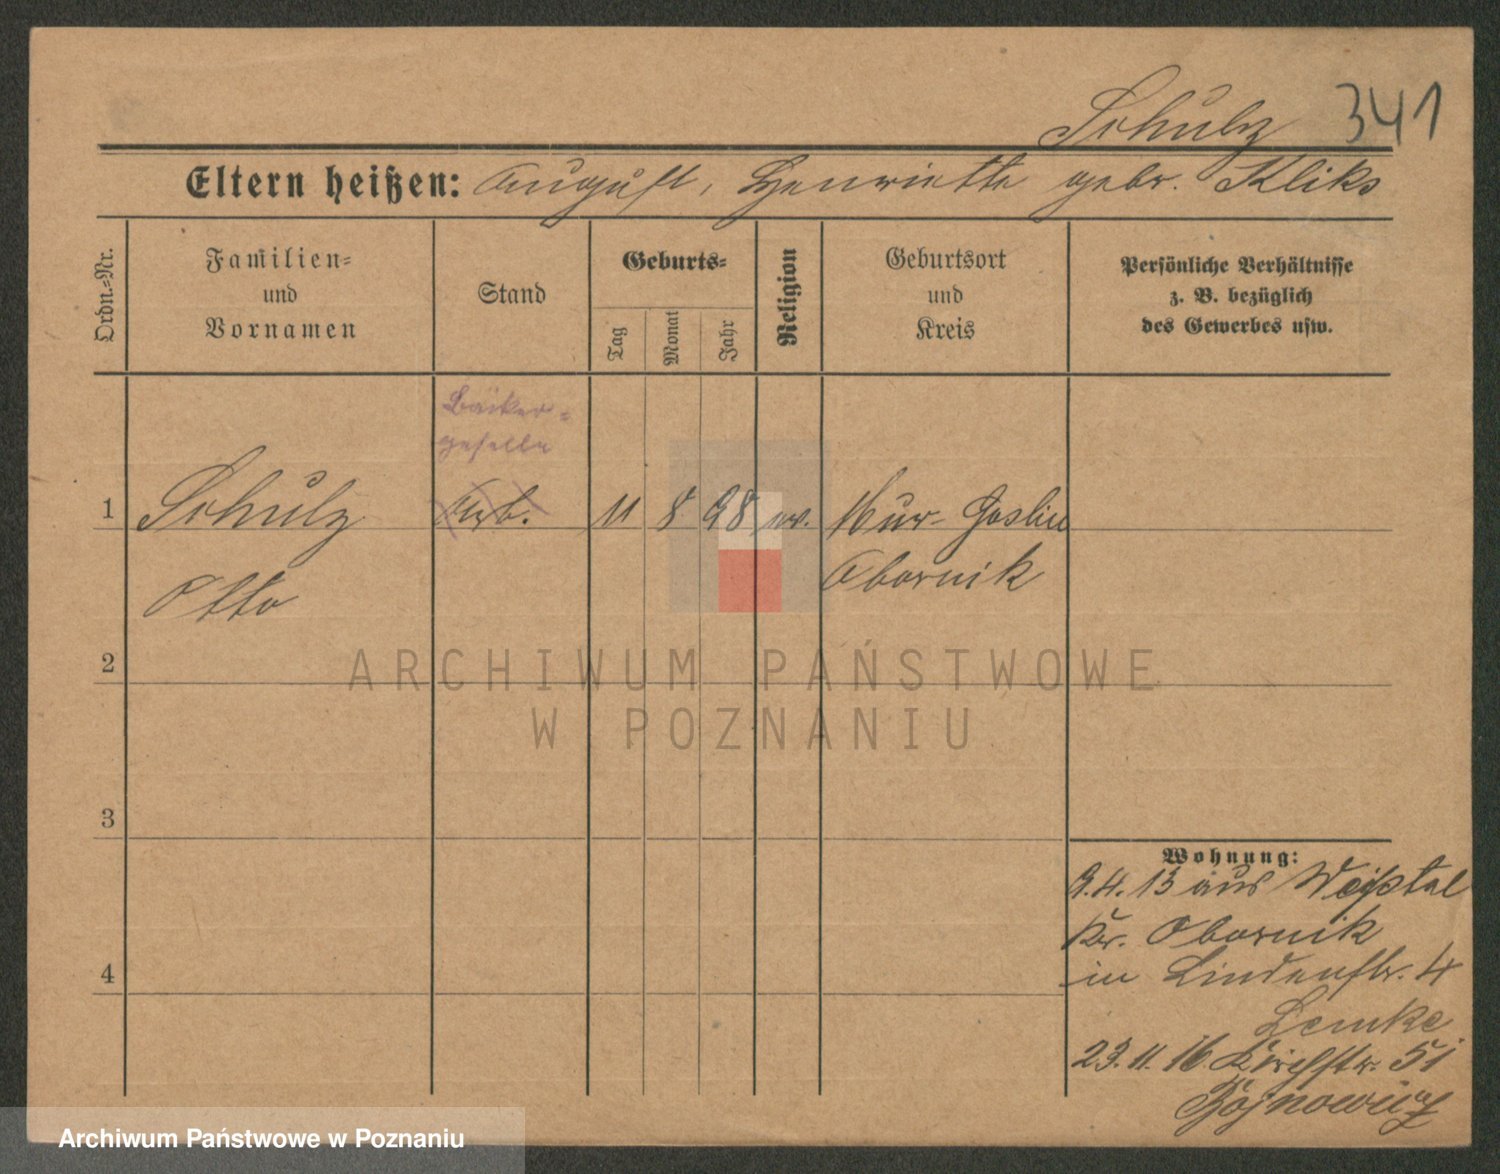 Schulz 341
Eltern heißen: August, Henriette gebr. Kliks
Ordn.-Nr.
Familien-
und
Vornamen
Stand
Geburts-
Tag
Monat
Jahr
Religion
Geburtsort
und
Kreis
Persönliche Verhältnisse
z. B. bezüglich
des Gewerbes usw.
Bäcker-
geselle
1 Schulz Arb. 11 8 98 ev. Mur-Goslin
Otto Obornik
2
3
4
Wohnung:
9.4.13 aus Weißtal
Kr. Obornik
in Lindenstr. 4
Lemke
23.11.16. Kirchstr. 51
ARCHIWUM PAŃSTWOWE
W POZNANIU
Archiwum Państwowe w Poznaniu